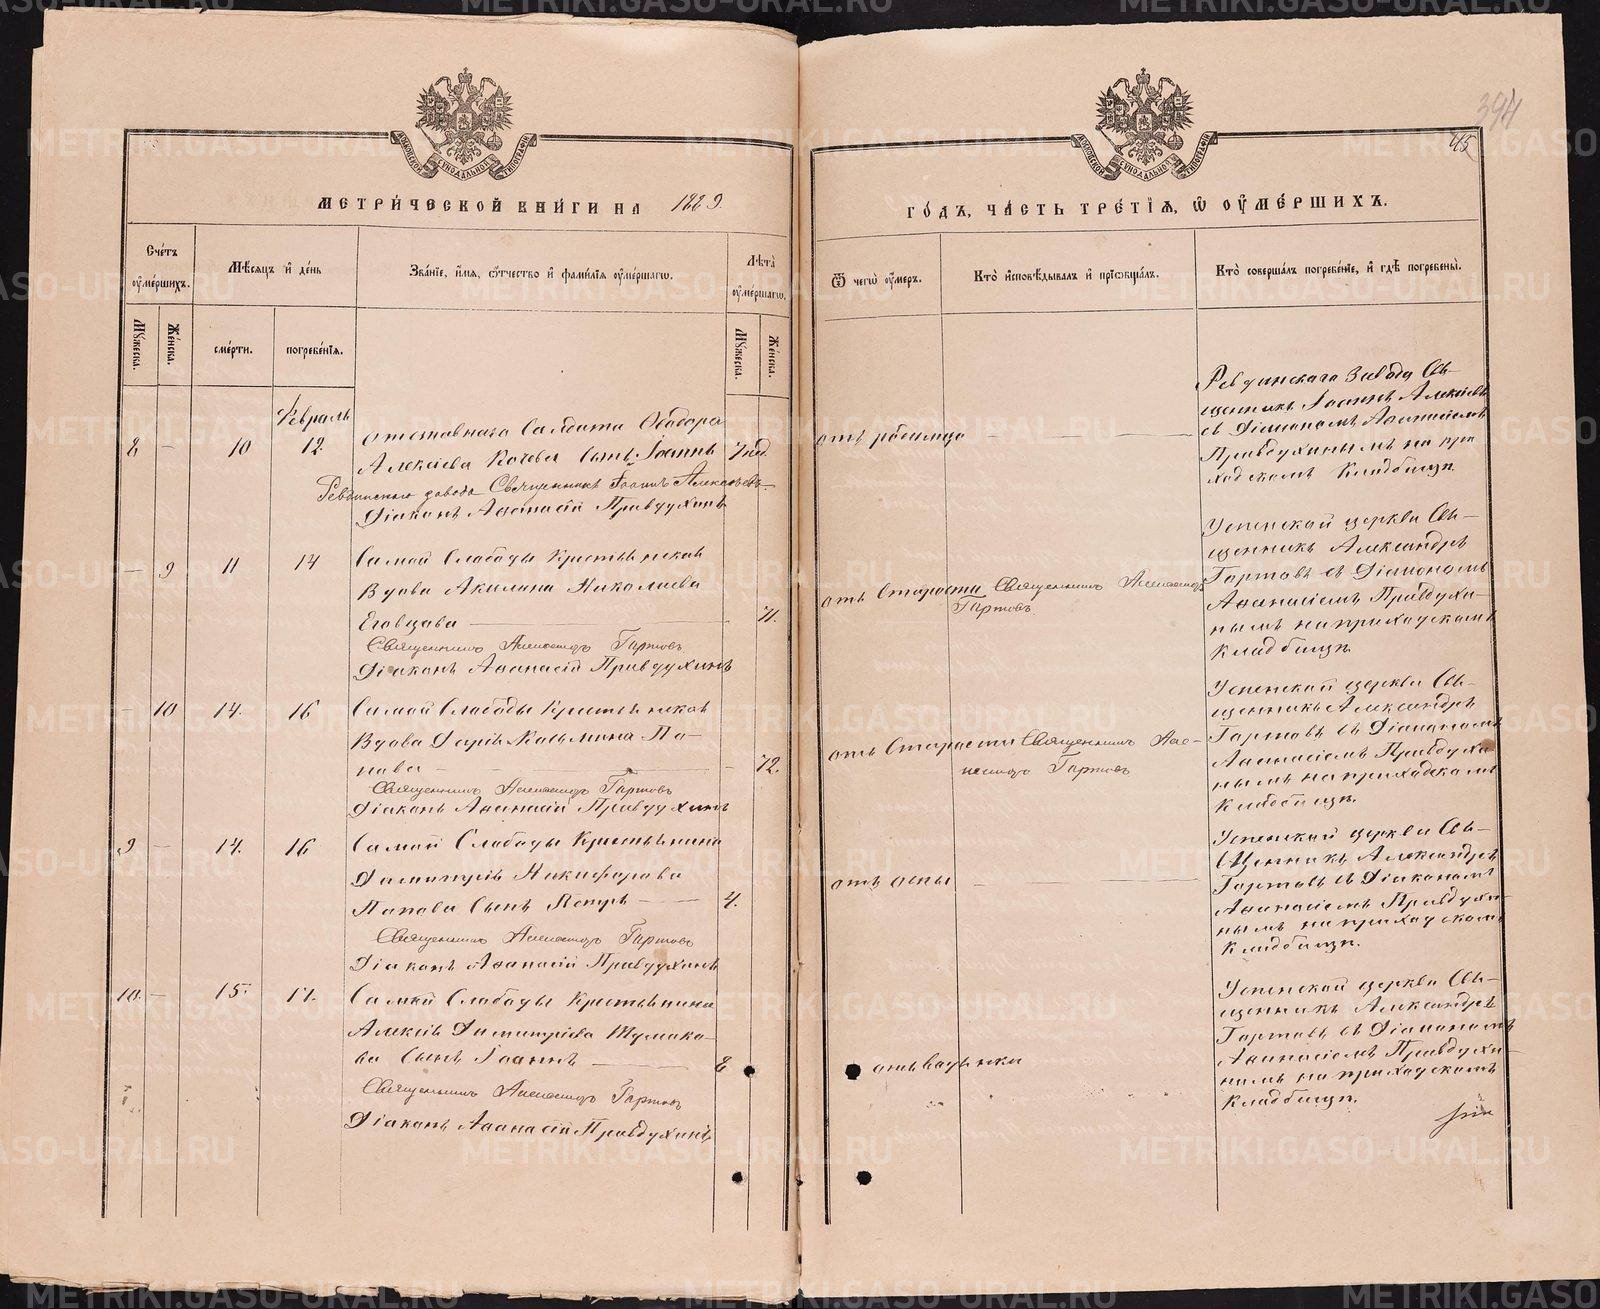 394
45
МЕТРИЧЕСКОЙ КНИГИ НА 1889.
ГОДЪ, ЧАСТЬ ТРЕТІЯ, Ѡ ОУМЕРШИХЪ.
Счетъ оумершихъ.
Мѣсяцъ и день
Званіе, имя, отчество и фамилія оумершаго.
Лѣта оумершаго.
Ѿ чегѡ оумеръ.
Кто исповѣдывалъ и пріобщалъ.
Кто совершалъ погребеніе, и гдѣ погребены.
Мужеска.
Женска.
смерти.
погребенія.
Мужеска.
Женска.
Февраль
8 — 10 12.
отставнаго Солдата Ѳеодора
Алексіева Кочева сынъ Іоаннъ
7 нед.
Ревдинскаго завода Священникъ Іоаннъ Алексѣевъ
Діаконъ Аѳанасій Правдухинъ
отъ родимца
Ревдинскаго Завода Свя-
щенникъ Іоаннъ Алексіевъ
съ Діакономъ Аѳанасіемъ
Правдухинымъ на при
ходскомъ Кладбищѣ
— 9 11 14
Самой Слободы Крестьянская
Вдова Акилина Николаева
71.
Священникъ Александръ Гортовъ
Діаконъ Аѳанасій Правдухинъ
отъ Старости
Священникъ Александръ
Гортовъ
Успенской церкви Свя-
щенникъ Александръ
Гортовъ съ Діакономъ
Аѳанасіемъ Правдухи-
нымъ на приходскомъ
Кладбищѣ
— 10 14. 16
Самой Слободы Крестьянская
Вдова Дарія Козьмина По-
пова
72.
Священникъ Александръ Гортовъ
Діаконъ Аѳанасій Правдухинъ
отъ Старости
Священникъ Алек-
сандръ Гортовъ
Успенской церкви Свя-
щенникъ Александръ
Гортовъ съ Діакономъ
Аѳанасіемъ Правдухи-
нымъ на приходскомъ
Кладбищѣ.
9 — 14. 16
Самой Слободы Крестьянина
Димитрія Никифорова
Попова Сынъ Петръ
4.
Священникъ Александръ Гортовъ
Діаконъ Аѳанасій Правдухинъ
отъ оспы
Успенской церкви Свя-
щенникъ Александръ
Гортовъ съ Діакономъ
Аѳанасіемъ Правдухи-
нымъ на приходскомъ
Кладбищѣ.
10. — 15. 17.
Самой Слободы Крестьянина
Алексія Димитріева Шумако-
ва Сынъ Іоаннъ
8
Священникъ Александръ Гортовъ
Діаконъ Аѳанасій Правдухинъ
отъ водянки
Успенской церкви Свя-
щенникъ Александръ
Гортовъ съ Діакономъ
Аѳанасіемъ Правдухи-
нымъ на приходскомъ
Кладбищѣ.
METRIKI.GASO-URAL.RU